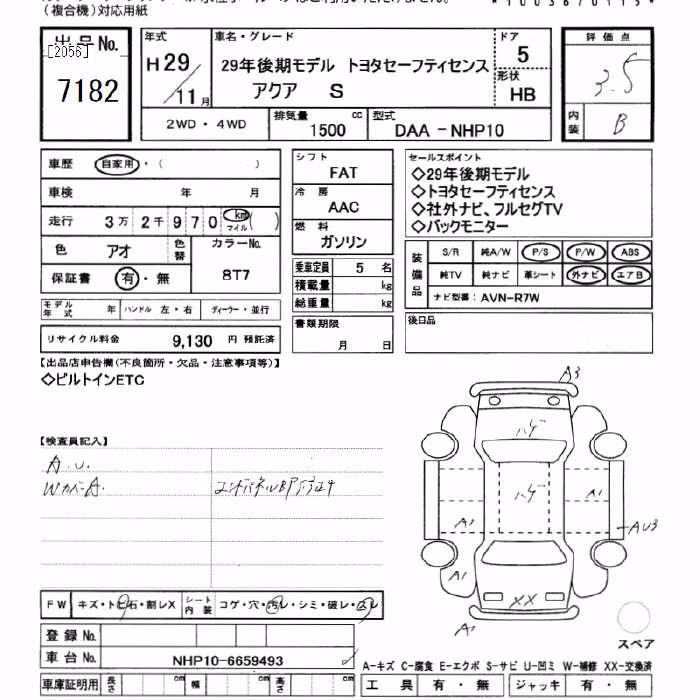 (複合機)対応用紙
出品No. 年式 車名・グレード ドア 評価点
[2056]
7182
H29/11月
29年後期モデル トヨタセーフティセンス
アクア S
5
形状
HB
3.5
内装 B
2WD・4WD 排気量 1500 cc 型式 DAA-NHP10
車歴 自家用・( )
車検 年 月
走行 3万2千970 km マイル ( )
色 アオ 色替 カラーNo. 8T7
保証書 有・無
モデル年式 年 ハンドル 左・右 ディーラー・並行
リサイクル料金 9,130 円 預託済
シフト
FAT
冷房
AAC
燃料
ガソリン
乗車定員 5 名
積載量 kg
総重量 kg
書類期限
月 日
セールスポイント
◇29年後期モデル
◇トヨタセーフティセンス
◇社外ナビ、フルセグTV
◇バックモニター
装備品 S/R 純A/W P/S P/W ABS
純TV 純ナビ 革シート 外ナビ エアB
ナビ型番: AVN-R7W
後日品
【出品店申告欄(不良箇所・欠品・注意事項等)】
◇ビルトインETC
【検査員記入】
A.U.
WカバーA.
A3
ハゲ
ハゲ
A1
A1
AU3
A1
XX
FW キズ・トビ石・割レX シート内装 コゲ・穴・汚レ・シミ・破レ・スレ
登録No.
車台No. NHP10-6659493
車庫証明用 長さ cm 幅 cm 高さ cm
スペア
A-キズ C-腐食 E-エクボ S-サビ U-凹ミ W-補修 XX-交換済
工具 有・無 ジャッキ 有・無